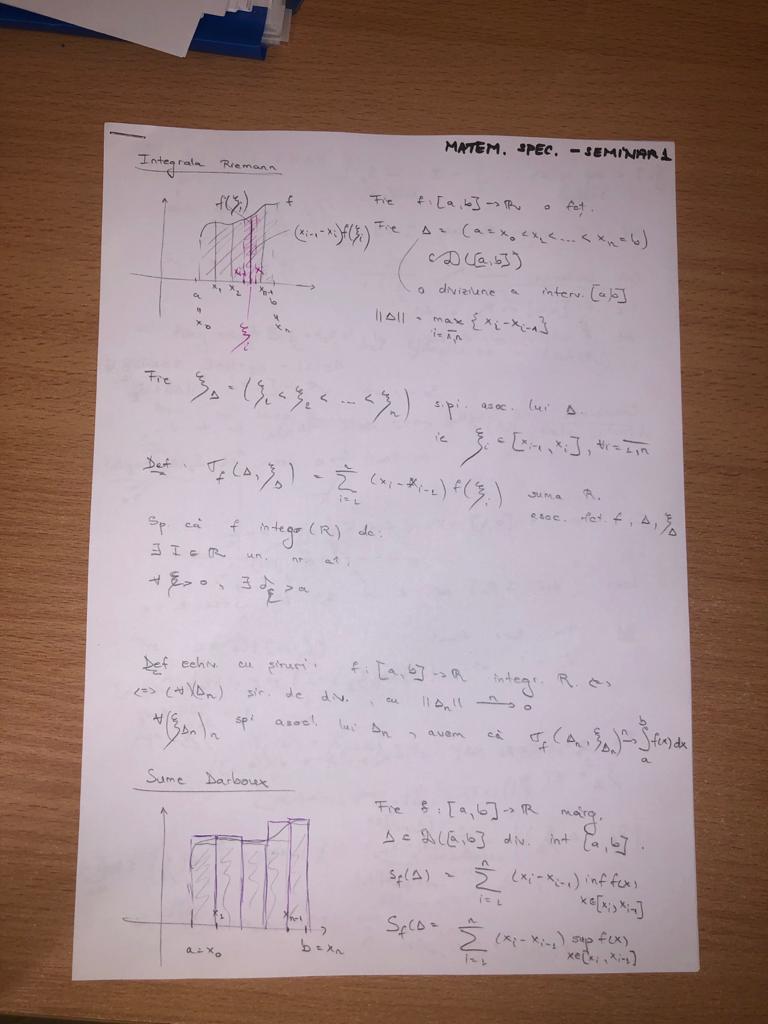 MATEM. SPEC. - SEMINAR 1
Integrala Riemann
f(ξi) f
(xi-1-xi)f(ξi)
a x1 x2 xn-1 b
= =
x0 ξi xn
Fie f: [a,b] → ℝ o fct.
Fie Δ = (a = x0 < x1 < ... < xn = b)
∈ D([a,b])
o diviziune a interv. [a,b]
||Δ|| = max {xi - xi-1}
i=1,n
Fie ξΔ = (ξ1 < ξ2 < ... < ξn) s.p.i. asoc. lui Δ.
ie ξi ∈ [xi-1, xi], ∀i = 1,n
Def: σf(Δ, ξΔ) = Σ (xi - xi-1) f(ξi) suma R.
i=1 n
asoc. fct. f, Δ, ξΔ
Sp. că f integr (R) dc:
∃ I ∈ ℝ un. nr. aî.
∀ ξ > 0, ∃ δξ > 0
Def echiv. cu șiruri: f: [a,b] → ℝ integr. R. <=>
<=> (∀)(Δn) șir. de div., cu ||Δn|| n→ 0
∀(ξΔn)n spi asoc. lui Δn, avem că σf(Δn, ξΔn) n→ ∫ab f(x)dx
Sume Darboux
a = x0 x1 xn-1 b = xn
Fie f: [a,b] → ℝ mărg.
Δ ∈ D([a,b] div. int [a,b].
sf(Δ) = Σ (xi - xi-1) inf f(x)
i=1 n x∈[xi, xi-1]
Sf(Δ = Σ (xi - xi-1) sup f(x)
i=1 n x∈[xi, xi-1]